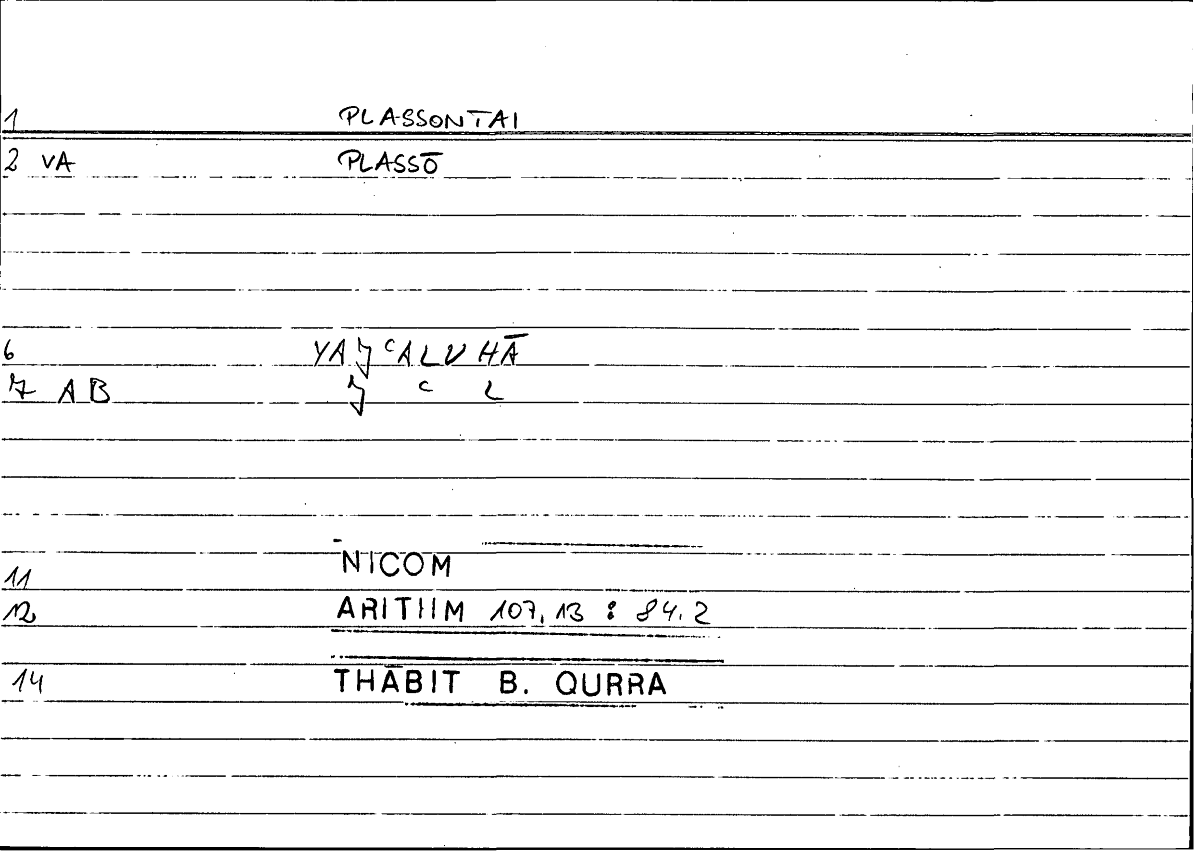 1 PLASSONTAI
2 VA PLASSŌ
6 YAJʿALUHĀ
7 AB J ʿ L
11 NICOM
12 ARITHM 107,13 : 84.2
14 THĀBIT B. QURRA